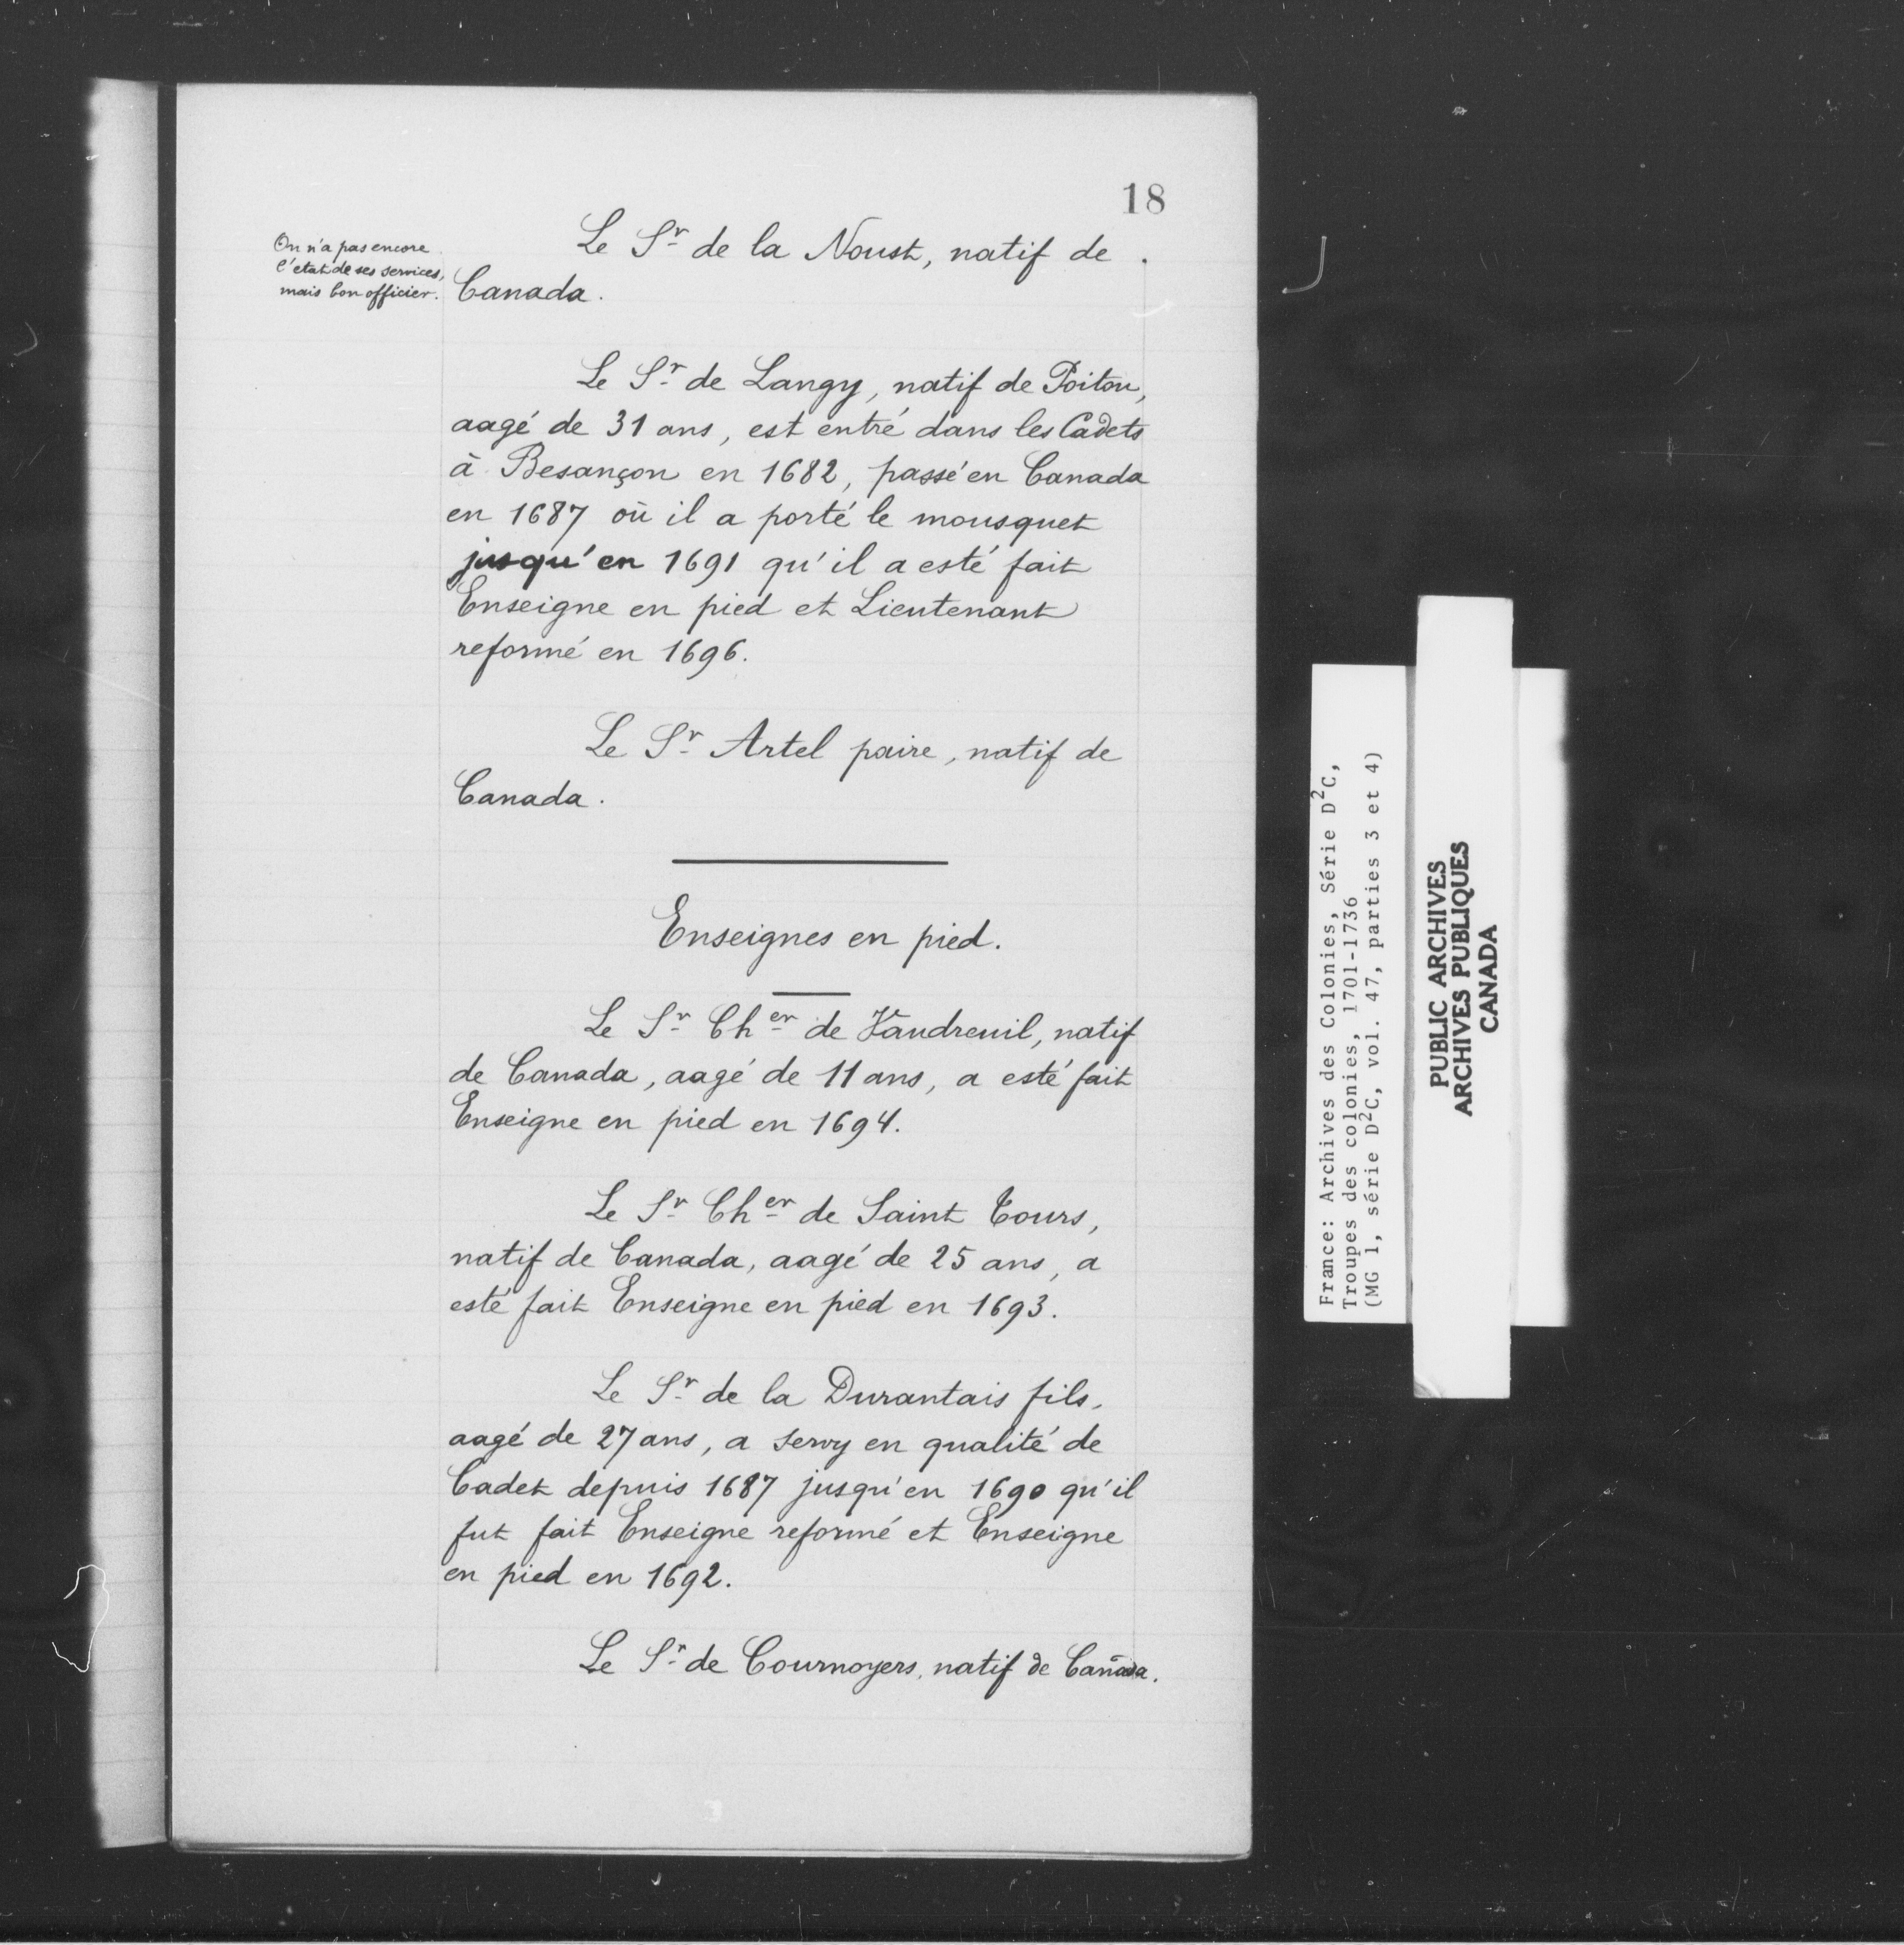 18
On n'a pas encore
l'etat de ses services,
mais bon officier.
Le Sr de la Noust, natif de
Canada.
Le Sr de Langy, natif de Poitou,
aagé de 31 ans, est entré dans les Cadets
à Besançon en 1682, passé en Canada
en 1687 où il a porté le mousquet
jusqu'en 1691 qu'il a esté fait
Enseigne en pied et Lieutenant
reformé en 1696.
Le Sr Artel paire, natif de
Canada.
Enseignes en pied.
Le Sr Cher de Vaudreuil, natif
de Canada, aagé de 11 ans, a esté fait
Enseigne en pied en 1694.
Le Sr Cher de Saint Tours,
natif de Canada, aagé de 25 ans, a
esté fait Enseigne en pied en 1693.
Le Sr de la Durantais fils,
aagé de 27 ans, a servy en qualité de
Cadet depuis 1687 jusqu'en 1690 qu'il
fut fait Enseigne reformé et Enseigne
en pied en 1692.
Le Sr de Cournoyers, natif de Canada.
France: Archives des Colonies, Série D²C,
Troupes des colonies, 1701-1736
(MG 1, série D²C, vol. 47, parties 3 et 4)
PUBLIC ARCHIVES
ARCHIVES PUBLIQUES
CANADA